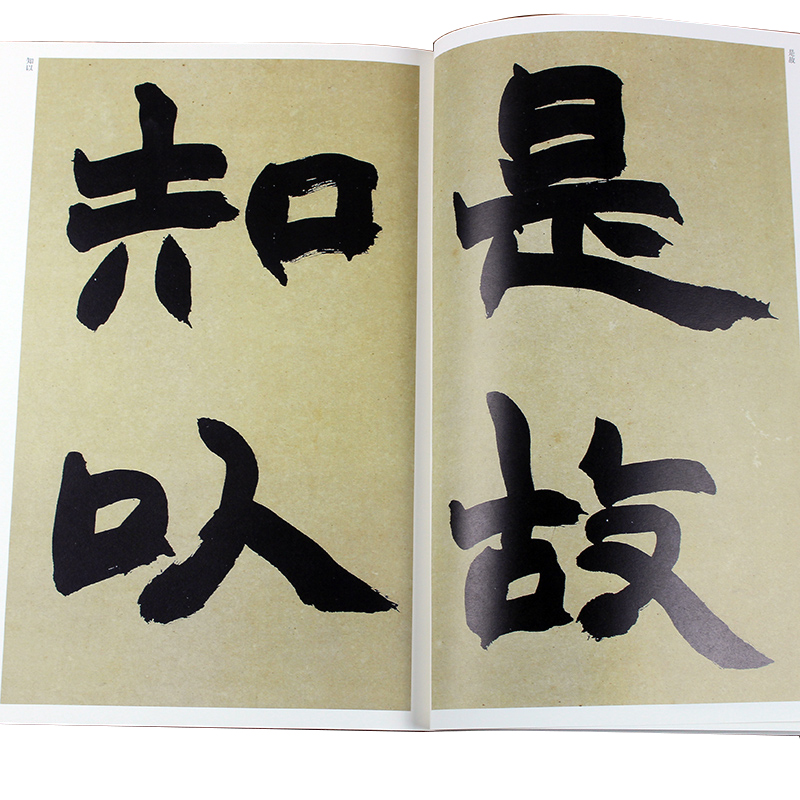 是故
是
故
知以
知
以